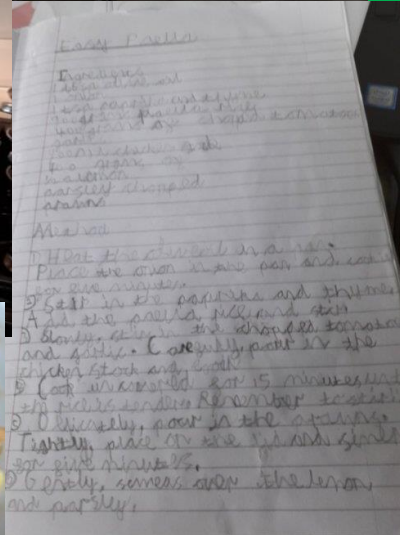 Easy Paella
Ingredients
1 tbsp olive oil
1 onion
1 tsp paprika and thyme
300g paella rice
400g chopped tomatoes
garlic
chicken stock
a lemon
parsley chopped
prawns
Method
1) Heat the olive oil in a pan.
Place the onion in the pan and cook
for five minutes.
2) Stir in the paprika and thyme.
Add the paella rice and stir
3) Slowly, stir in the chopped tomatoes
and garlic. Carefully, pour in the
chicken stock and cook
Cook uncovered for 15 minutes until
the rice is tender. Remember to stir.
pour in the prawns.
Tightly, place on the lid and simmer
for five minutes.
Gently, over the lemon
and parsley.